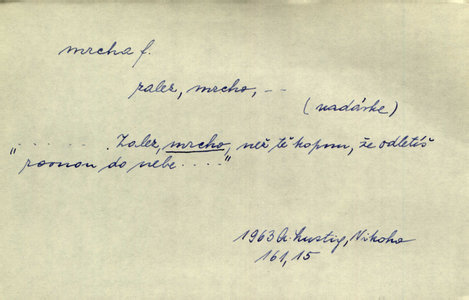 mrcha f.
zalez, mrcho, - -
(nadávke)
"....... Zalez, mrcho, než tě kopnu, že odletíš
rovnou do nebe ...."
1963 A. Lustig, Nikoho
161, 15